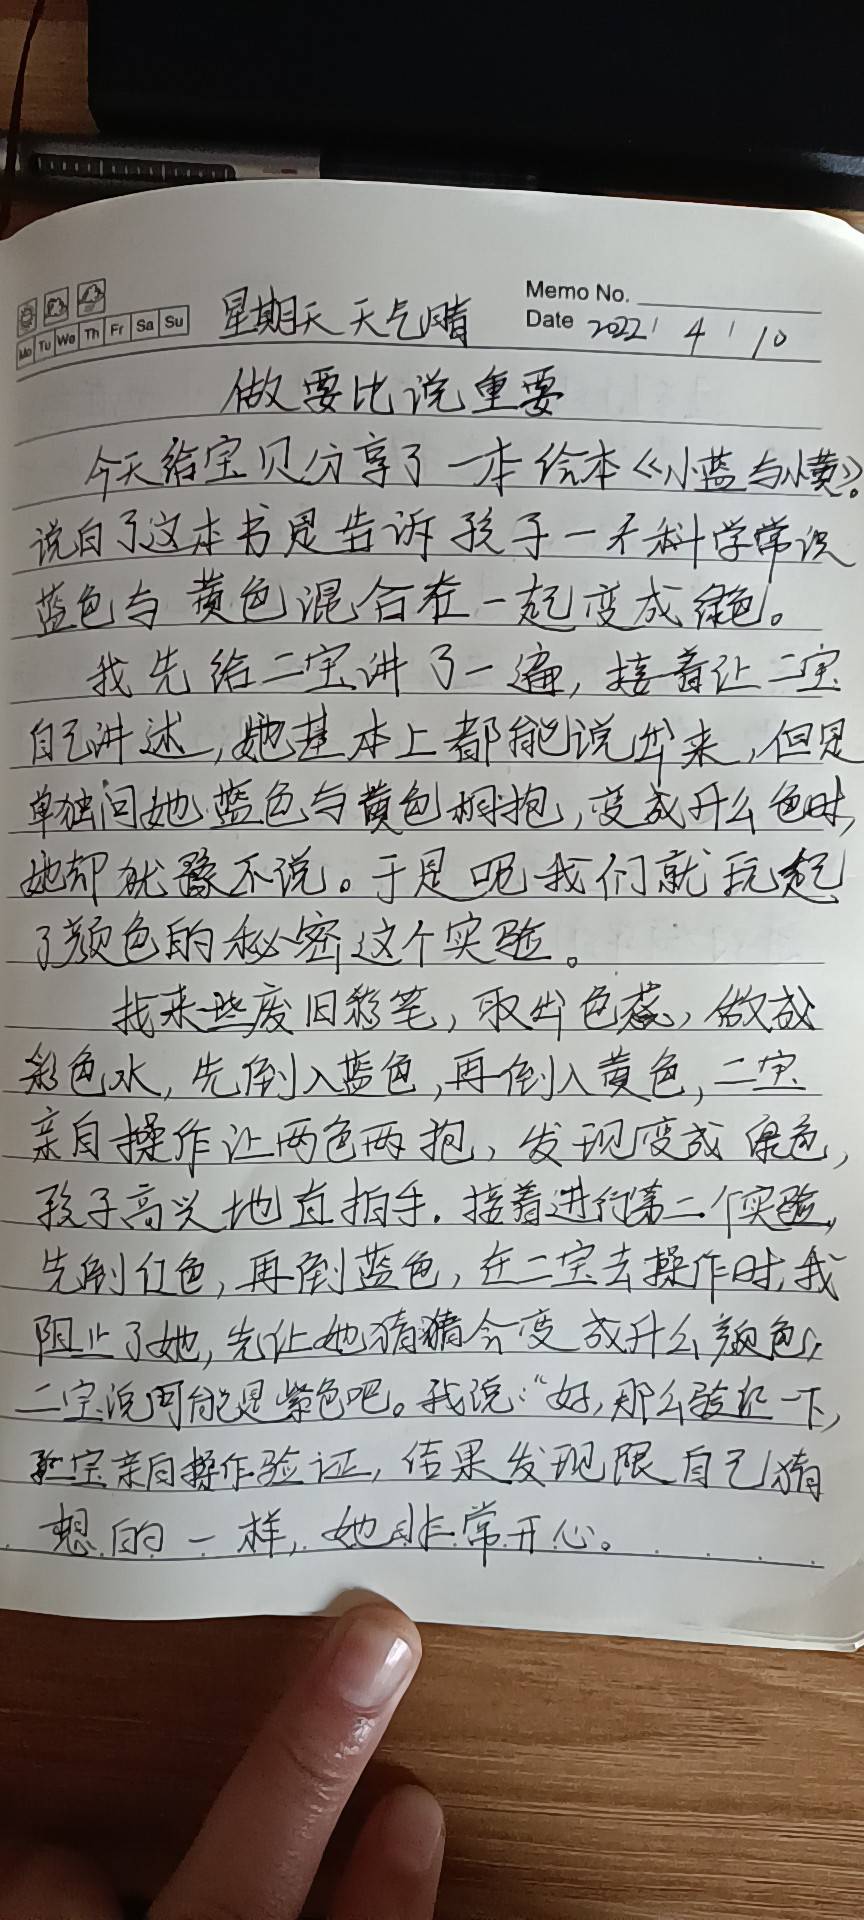 Memo No.
Mo Tu We Th Fr Sa Su
星期天 天气晴
Date 2022 / 4 / 10
做要比说重要
今天给宝贝分享了一本绘本《小蓝与小黄》。
说白了这本书是告诉孩子一个科学常识
蓝色与黄色混合在一起变成绿色。
我先给二宝讲了一遍，接着让二宝
自己讲述，她基本上都能说出来，但是
单独问她蓝色与黄色拥抱，变成什么色时，
她却犹豫不说。于是呢我们就玩起
了颜色的秘密这个实验。
找来些废旧彩笔，取出色蕊，做成
彩色水，先倒入蓝色，再倒入黄色，二宝
亲自操作让两色两抱，发现变成绿色，
孩子高兴地直拍手。接着进行第二个实验，
先倒红色，再倒蓝色，在二宝去操作时，我
阻止了她，先让她猜猜会变成什么颜色，
二宝说可能是紫色吧。我说：“好，那么验证一下，
宝亲自操作验证，结果发现跟自己猜
想的一样，她非常开心。